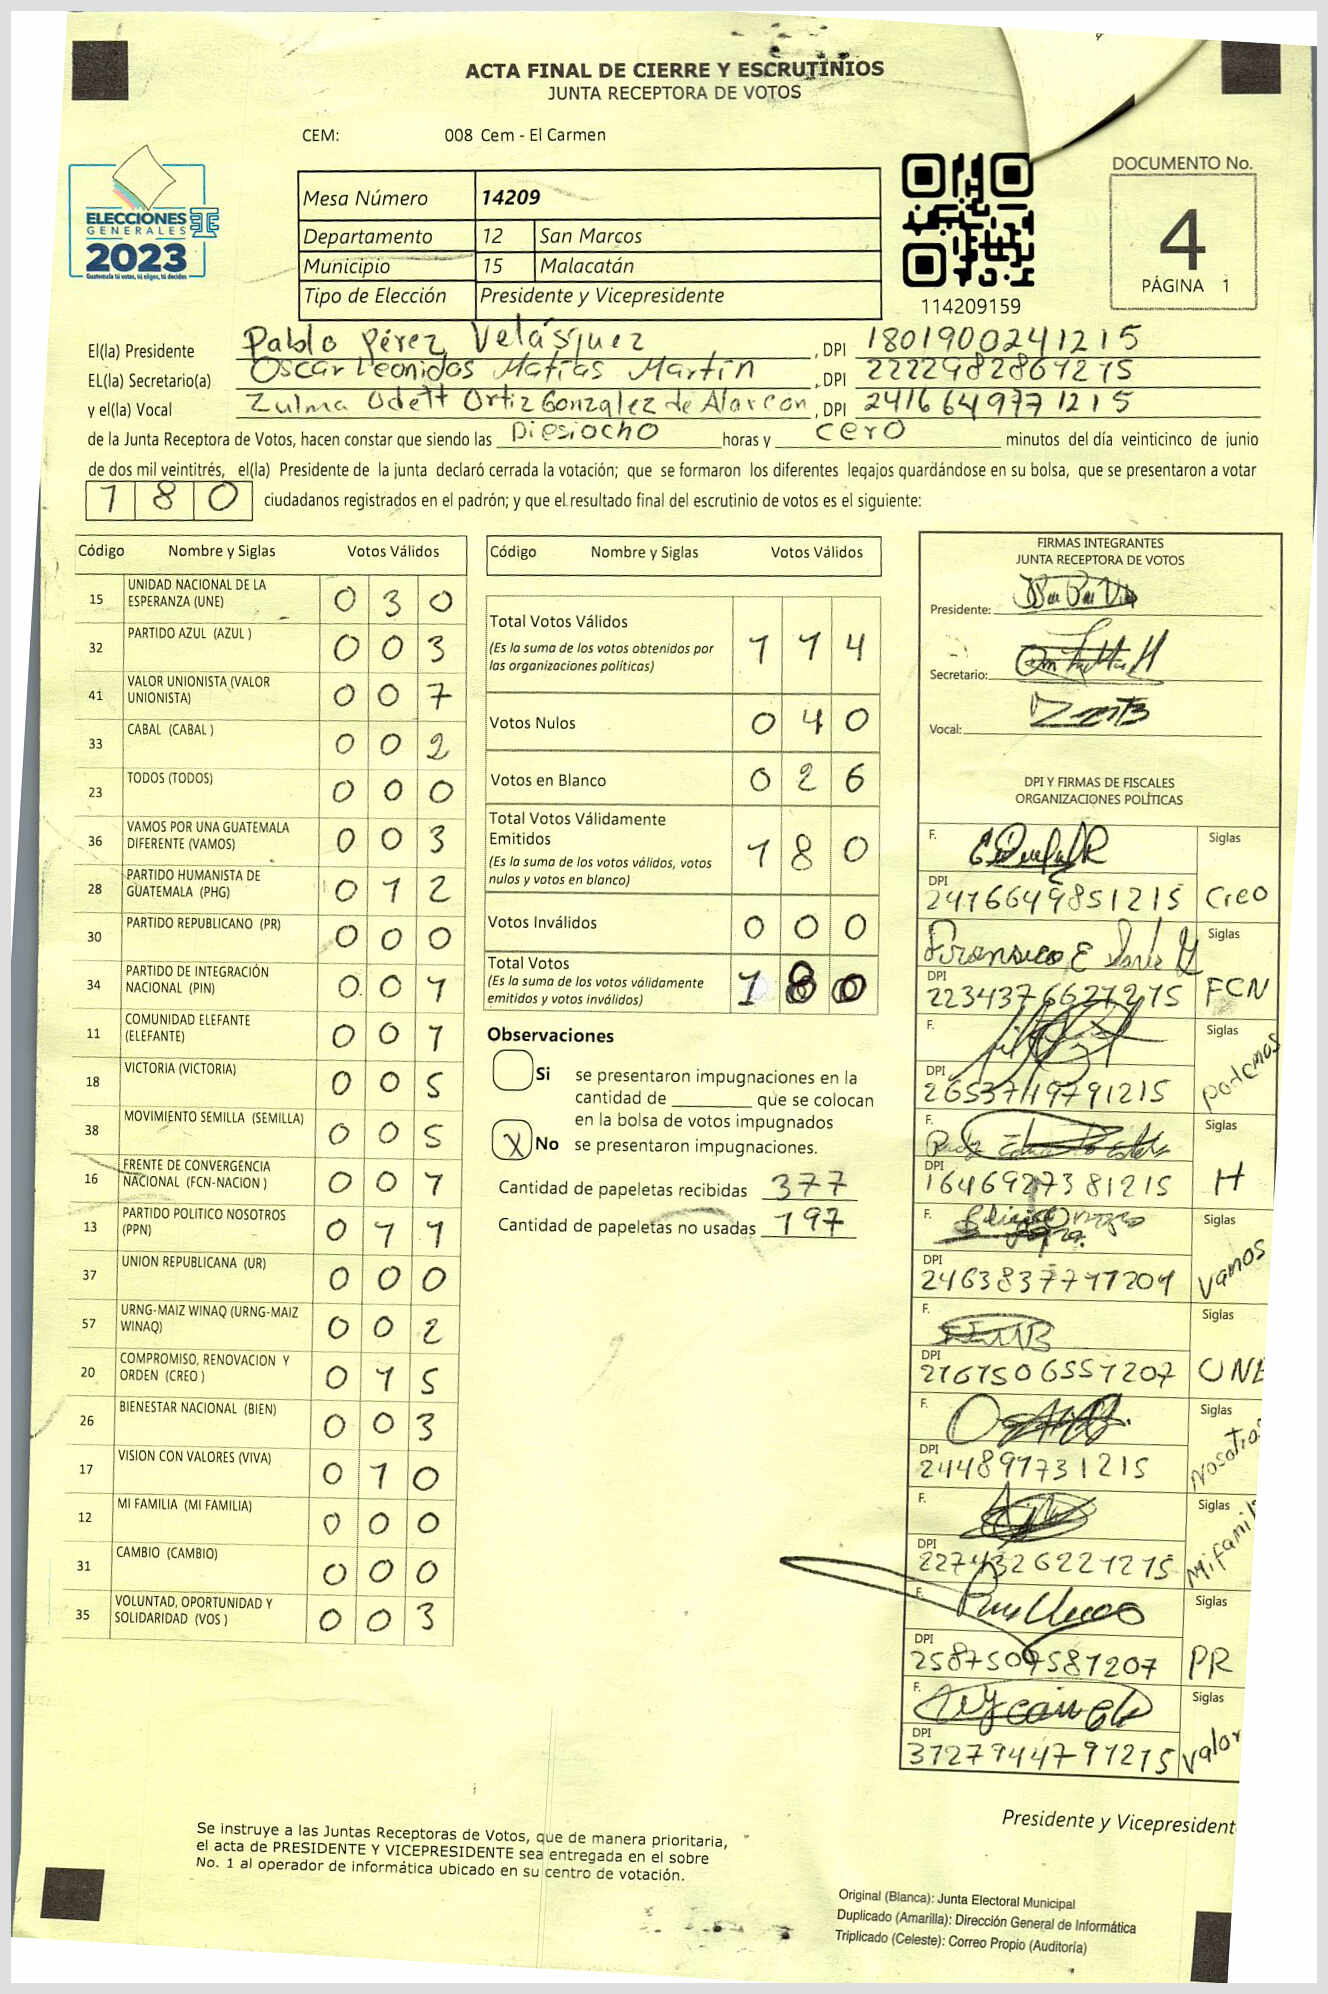 ACTA FINAL DE CIERRE Y ESCRUTINIOS
JUNTA RECEPTORA DE VOTOS
CEM: 008 Cem - El Carmen
ELECCIONES
GENERALES
2023
Guatemala tú votas, tú eliges, tú decides
Mesa Número 14209
Departamento 12 San Marcos
Municipio 15 Malacatán
Tipo de Elección Presidente y Vicepresidente
114209159
DOCUMENTO No.
4
PÁGINA 1
El(la) Presidente Pablo Pérez Velásquez, DPI 1801900241215
EL(la) Secretario(a) Oscar Leonidas Matías Martín, DPI 2222982861215
y el(la) Vocal Zulma Odett Ortiz Gonzalez de Alarcon, DPI 2416649771215
de la Junta Receptora de Votos, hacen constar que siendo las Diesiocho horas y cero minutos del día veinticinco de junio
de dos mil veintitrés, el(la) Presidente de la junta declaró cerrada la votación; que se formaron los diferentes legajos guardándose en su bolsa, que se presentaron a votar
180 ciudadanos registrados en el padrón; y que el resultado final del escrutinio de votos es el siguiente:
Código Nombre y Siglas Votos Válidos
15 UNIDAD NACIONAL DE LA ESPERANZA (UNE) 0 3 0
32 PARTIDO AZUL (AZUL ) 0 0 3
41 VALOR UNIONISTA (VALOR UNIONISTA) 0 0 7
33 CABAL (CABAL ) 0 0 2
23 TODOS (TODOS) 0 0 0
36 VAMOS POR UNA GUATEMALA DIFERENTE (VAMOS) 0 0 3
28 PARTIDO HUMANISTA DE GUATEMALA (PHG) 0 1 2
30 PARTIDO REPUBLICANO (PR) 0 0 0
34 PARTIDO DE INTEGRACIÓN NACIONAL (PIN) 0 0 1
11 COMUNIDAD ELEFANTE (ELEFANTE) 0 0 1
18 VICTORIA (VICTORIA) 0 0 5
38 MOVIMIENTO SEMILLA (SEMILLA) 0 0 5
16 FRENTE DE CONVERGENCIA NACIONAL (FCN-NACION ) 0 0 1
13 PARTIDO POLITICO NOSOTROS (PPN) 0 1 1
37 UNION REPUBLICANA (UR) 0 0 0
57 URNG-MAIZ WINAQ (URNG-MAIZ WINAQ) 0 0 2
20 COMPROMISO, RENOVACION Y ORDEN (CREO ) 0 1 5
26 BIENESTAR NACIONAL (BIEN) 0 0 3
17 VISION CON VALORES (VIVA) 0 1 0
12 MI FAMILIA (MI FAMILIA) 0 0 0
31 CAMBIO (CAMBIO) 0 0 0
35 VOLUNTAD, OPORTUNIDAD Y SOLIDARIDAD (VOS ) 0 0 3
Código Nombre y Siglas Votos Válidos
Total Votos Válidos 1 1 4
(Es la suma de los votos obtenidos por
las organizaciones politicas)
Votos Nulos 0 4 0
Votos en Blanco 0 2 6
Total Votos Válidamente
Emitidos 1 8 0
(Es la suma de los votos válidos, votos
nulos y votos en blanco)
Votos Inválidos 0 0 0
Total Votos 1 8 0
(Es la suma de los votos válidamente
emitidos y votos inválidos)
Observaciones
Si se presentaron impugnaciones en la
cantidad de ________ que se colocan
en la bolsa de votos impugnados
X No se presentaron impugnaciones.
Cantidad de papeletas recibidas 377
Cantidad de papeletas no usadas 197
FIRMAS INTEGRANTES
JUNTA RECEPTORA DE VOTOS
Presidente:
Secretario:
Vocal:
DPI Y FIRMAS DE FISCALES
ORGANIZACIONES POLÍTICAS
F. Siglas
DPI 2416649851215 Creo
F. Siglas
DPI 2234376621215 FCN
F. Siglas
DPI 2653711979 1215 podemos
F. Siglas
DPI 1646927381215 H
F. Siglas
DPI 2463837771201 Vamos
F. Siglas
DPI 2161506551207 UNE
F. Siglas
DPI 244891731215 Nosotros
F. Siglas
DPI 2274326221215 Mi famili
F. Siglas
DPI 2587509581207 PR
F. Siglas
DPI 3127944791215 Valor
Presidente y Vicepresident
Se instruye a las Juntas Receptoras de Votos, que de manera prioritaria,
el acta de PRESIDENTE Y VICEPRESIDENTE sea entregada en el sobre
No. 1 al operador de informática ubicado en su centro de votación.
Original (Blanca): Junta Electoral Municipal
Duplicado (Amarilla): Dirección General de Informática
Triplicado (Celeste): Correo Propio (Auditoría)